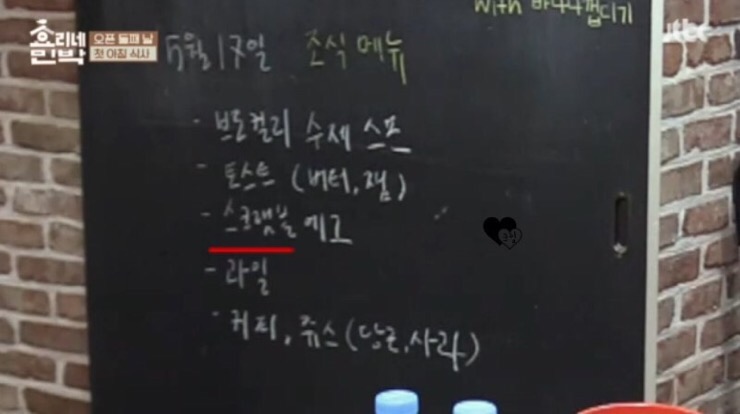 효리네
민박
오픈 둘째 날
첫 아침 식사
with 바나나껍디기
jtbc
5월 17일 조식 메뉴
- 브로컬리 수제 스프
- 토스트 (버터, 잼)
- 스크램블 에그
- 과일
- 커피, 쥬스 (당근, 사과)